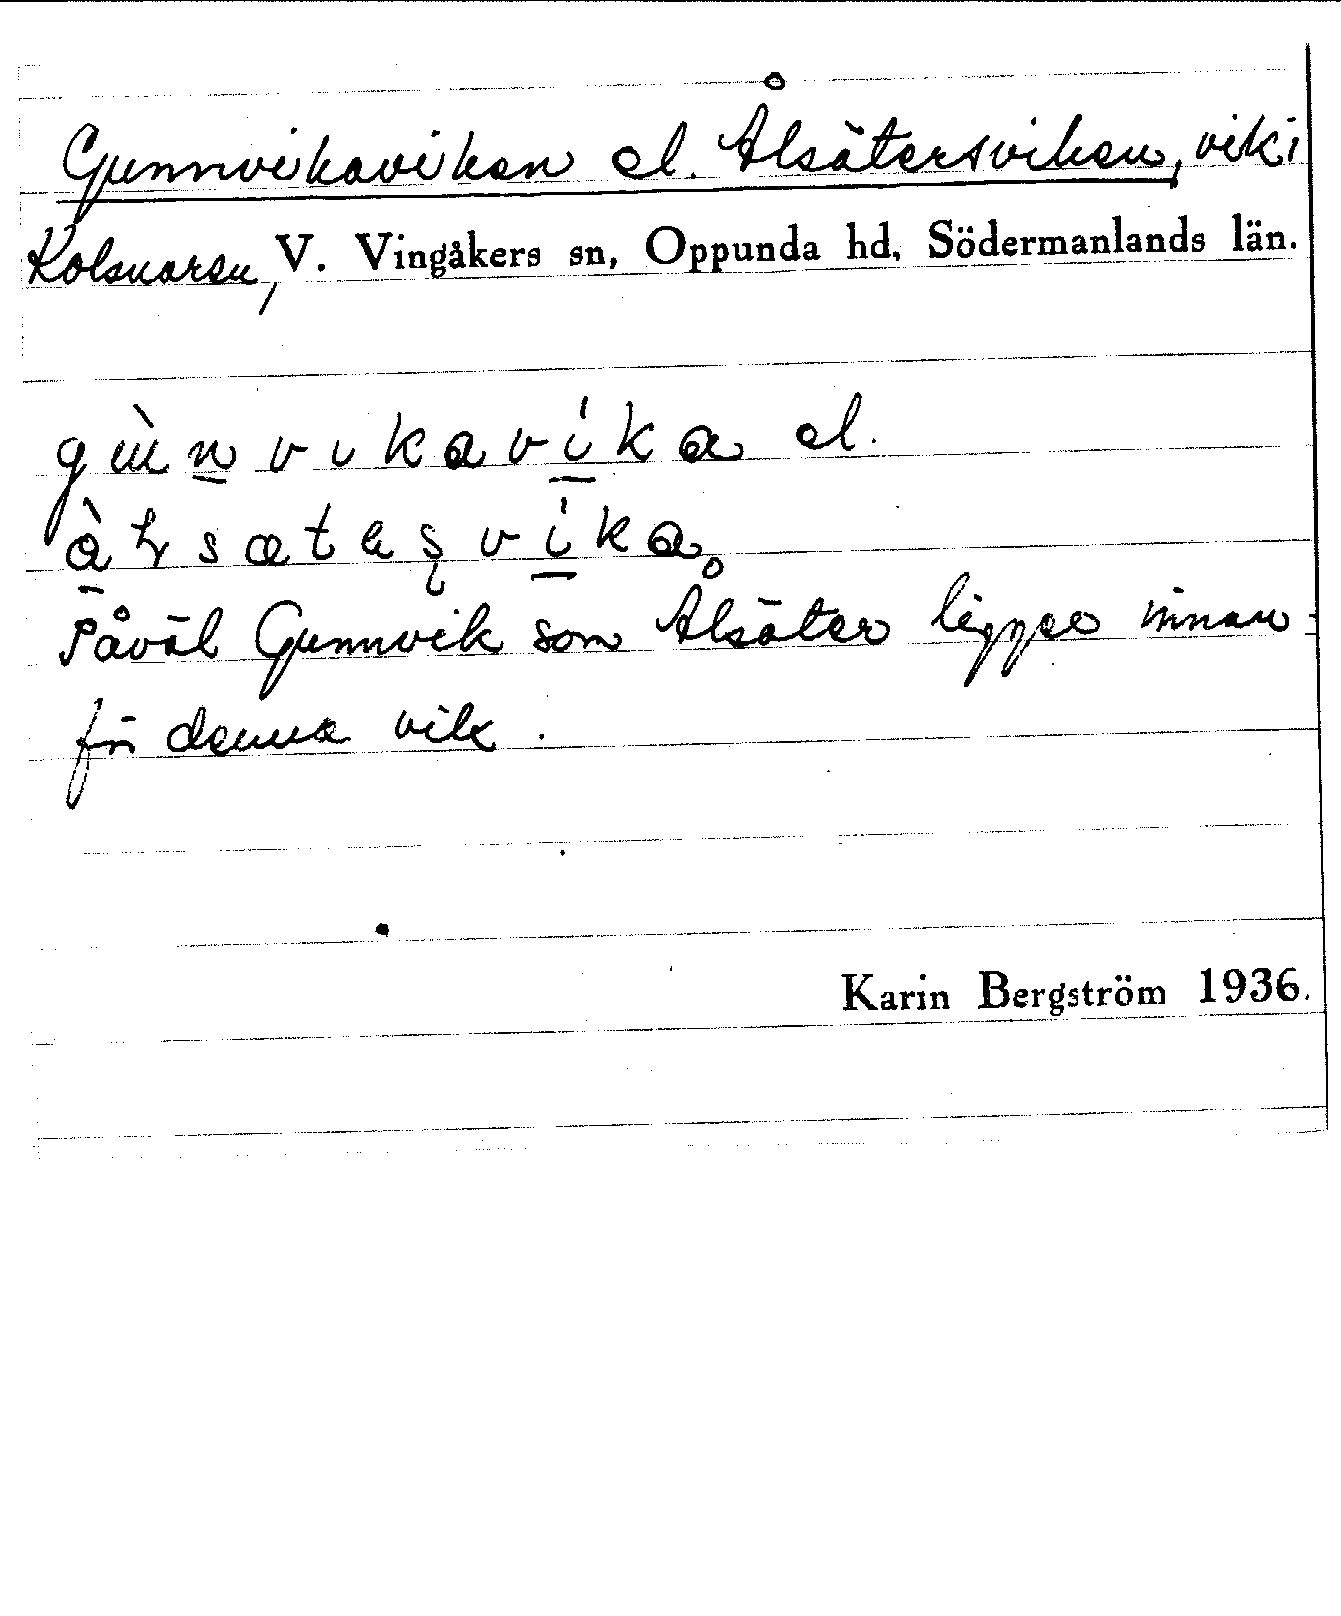 Gunnvikaviken el. Ålsätersviken, vik i
Kolsnaren, V. Vingåkers sn, Oppunda hd, Södermanlands län.
gùnvikavíka el.
àlsætaşvíka
Såväl Gunnvik som Ålsäter ligger innan-
för denna vik.
Karin Bergström 1936.